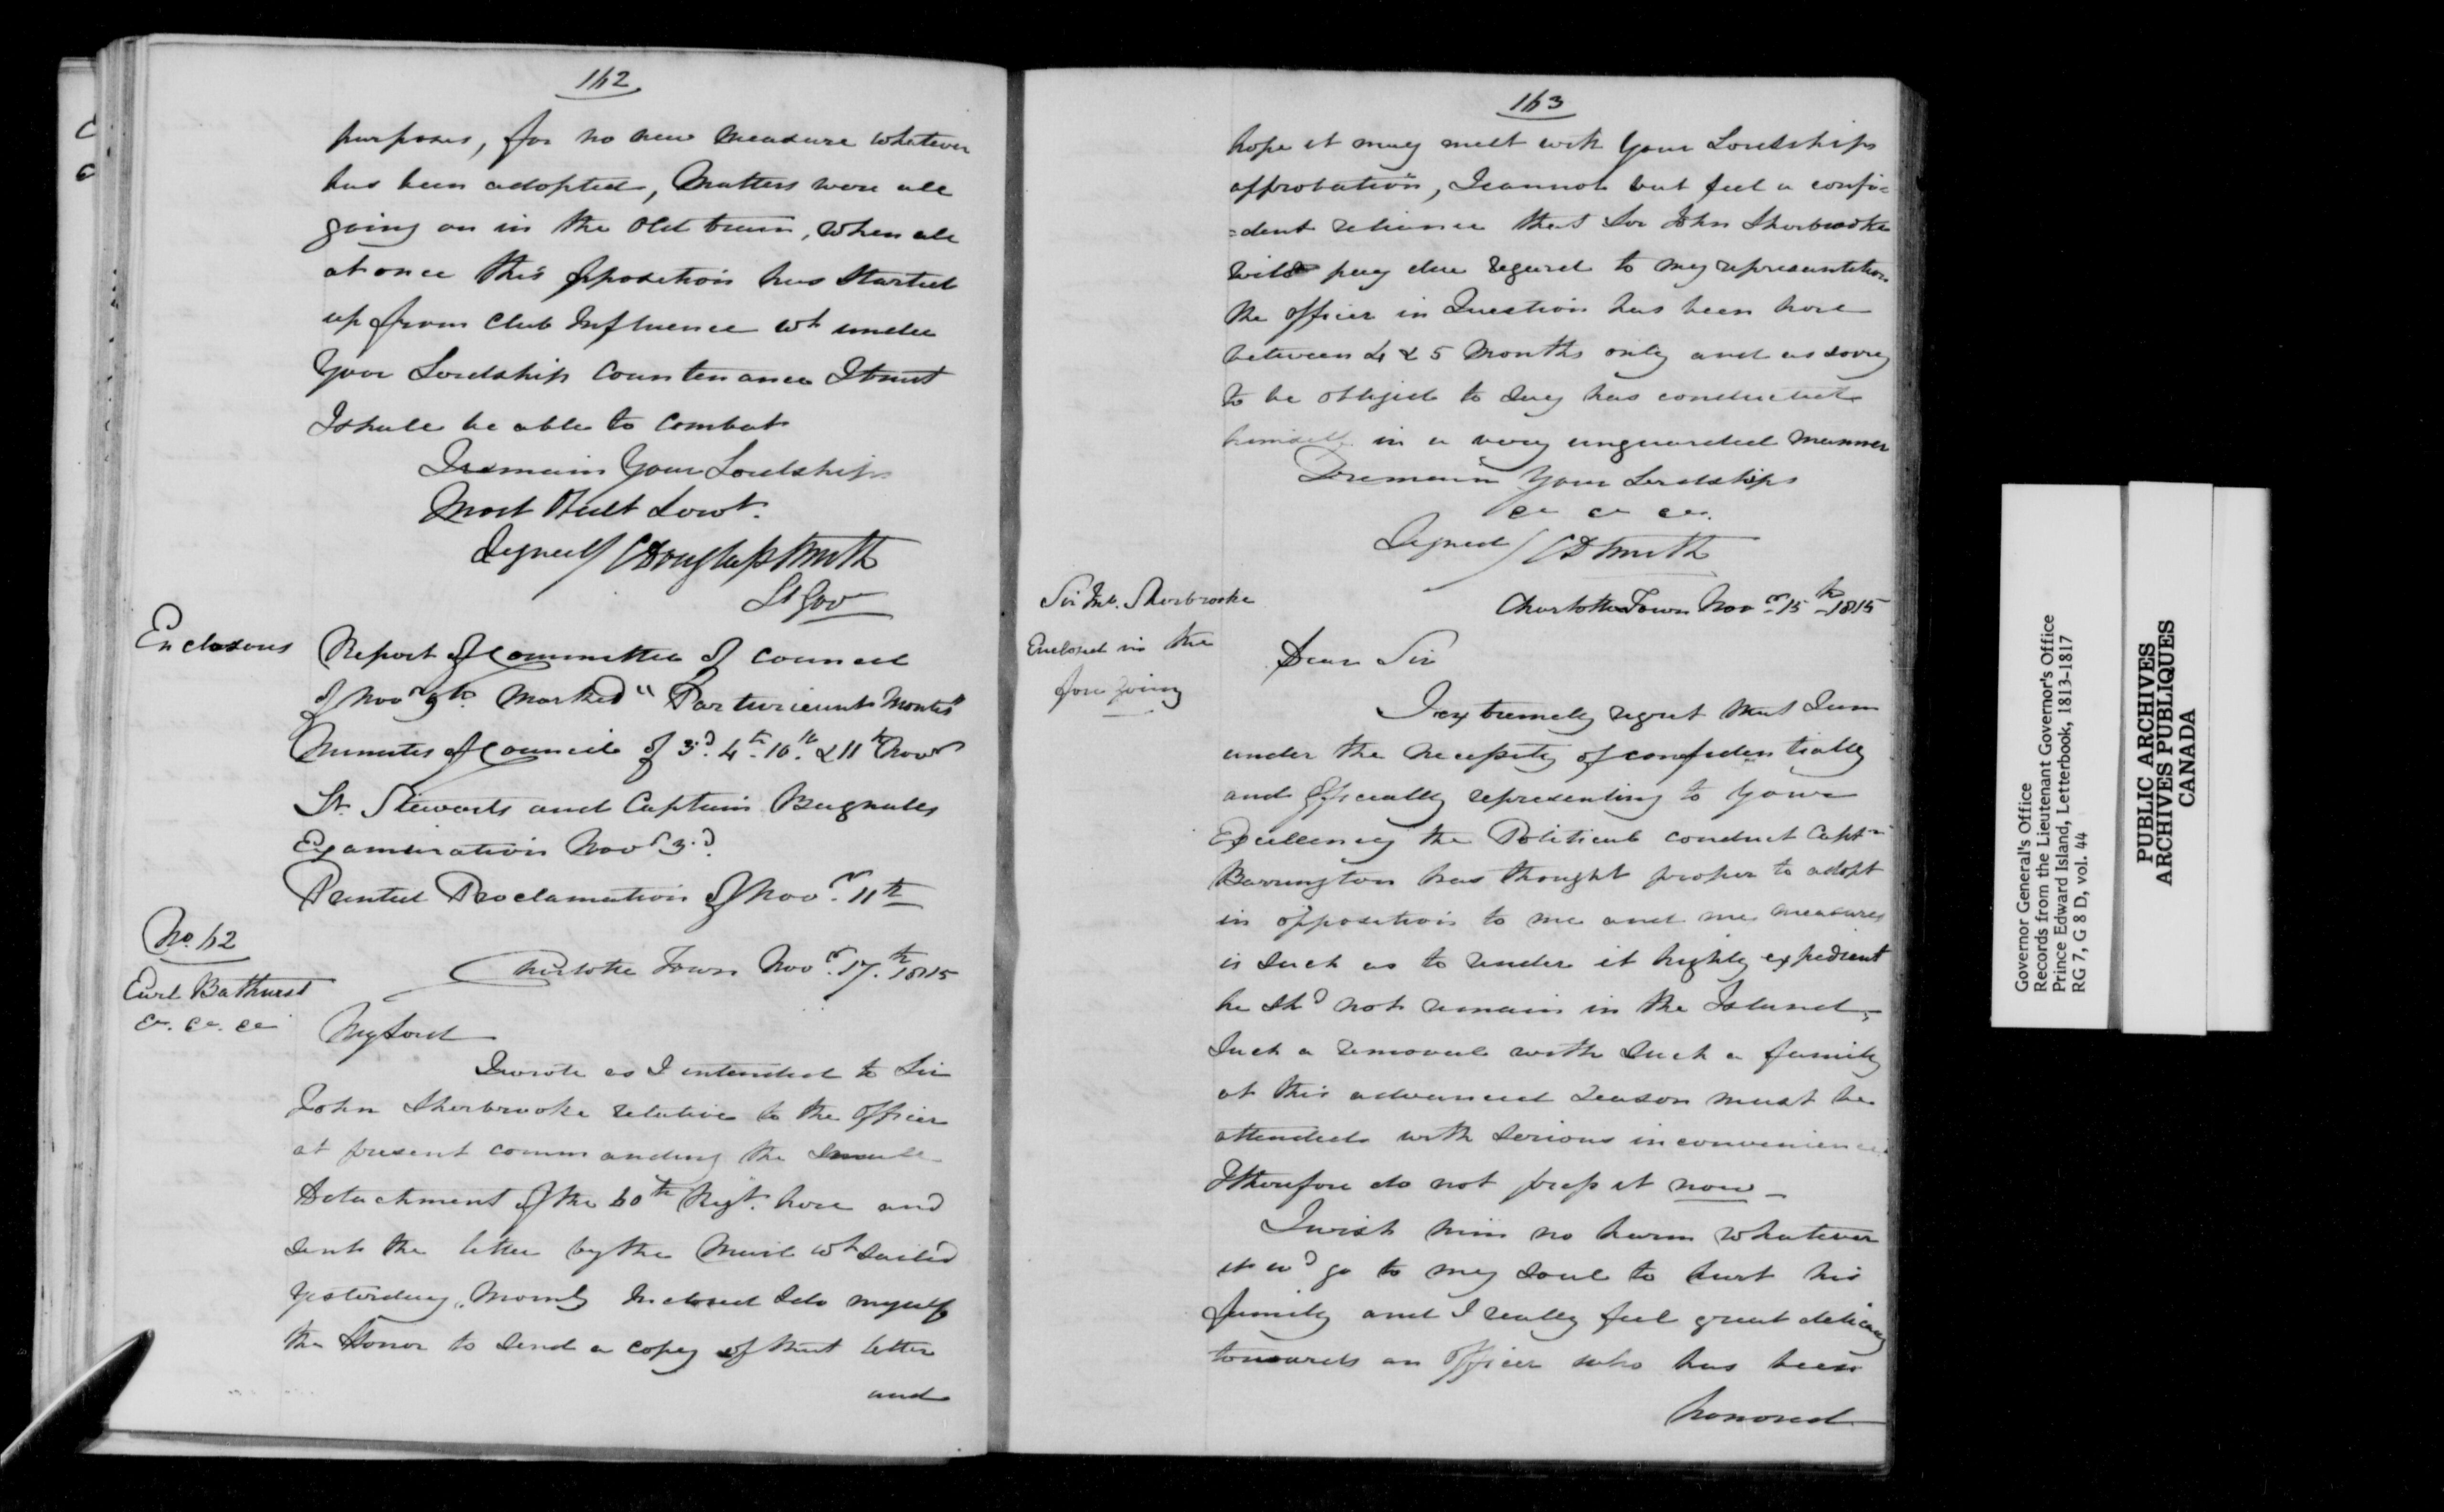 162
purposes, for no new measure whatever
has been adopted, Matters were all
going on in the old train, when all
at once this opposition has started
up from Club Influence wh under
Your Lordship Countenance I trust
I shall be able to Combat
I remain Your Lordships
Most Obedt Servt.
Signed / C Douglass Smith
Lt Gov
Enclosures
Report of Committee of Council
of Novr 9th. Marked "Parturiunt Montes"
Minutes of Council of 3d. 4th. 10th. & 11th Novr
Lt. Stewarts and Captain Bagnalls
Examination Novr 3d.
Printed Proclamation of Novr. 11th
No. 62
Earl Bathurst
&c. &c. &c
Charlotte Town Novr. 17th. 1815
My Lord
I wrote as I intended to Sir
John Sherbrooke relative to the Officer
at present commanding the small
Detachment of the 60th Regt. here and
sent the letter by the Mail wh sailed
Yesterday Morng Inclosed I do myself
the Honor to send a copy of that letter
and
163
hope it may meet with Your Lordships
approbation, I cannot but feel a confi=
=dent reliance that Sir John Sherbrooke
will pay due regard to my representation
the officer in Question has been here
between 4 & 5 Months only and as sorry
to be obliged to say has conducted
himself in a very unguarded manner
I remain Your Lordships
&c &c &c.
Signed / C D Smith
Sir Jno. Sherbrooke
Enclosed in the
foregoing
Charlotte Town Novr. 15th 1815
Dear Sir
I extremely regret that I am
under the necessity of confidentially
and Officially representing to Your
Excellency the Political conduct Captn
Barrington has thought proper to adopt
in opposition to me and me measures
is such as to render it highly expedient
he shd not remain in the Island,
Such a removal with such a family
at this advanced season must be
attended with serious inconvenience
I therefore do not press it now —
I wish him no harm whatever
it wd go to my soul to hurt his
family and I really feel great delicacy
towards an Officer who has been
honored
Governor General's Office
Records from the Lieutenant Governor's Office
Prince Edward Island, Letterbook, 1813-1817
RG 7, G 8 D, vol. 44
PUBLIC ARCHIVES
ARCHIVES PUBLIQUES
CANADA